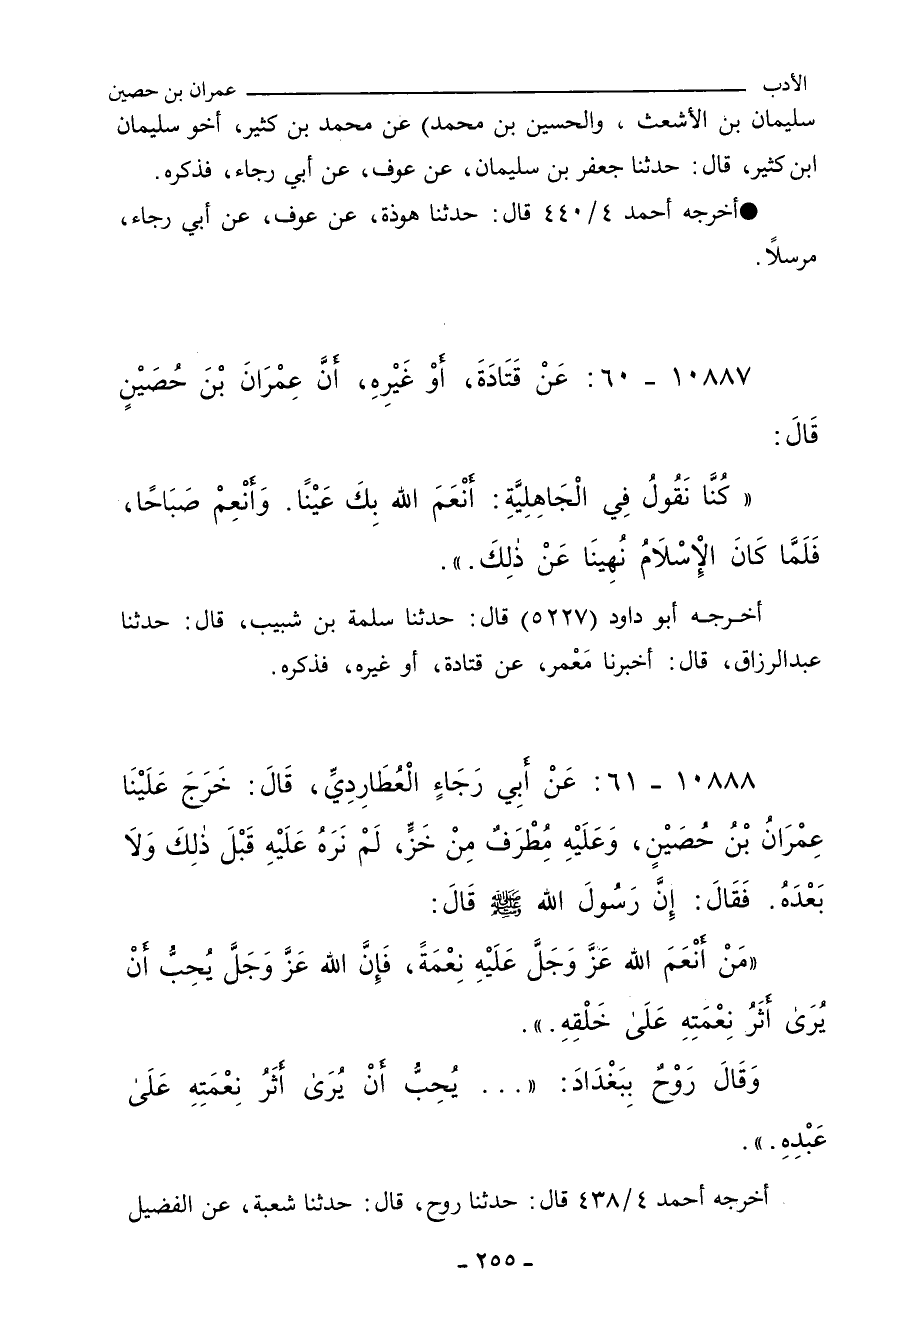 الأدب ــــــــــ عمران بن حصين
سليمان بن الأشعث ، والحسين بن محمد) عن محمد بن كثير، أخو سليمان
ابن كثير، قال: حدثنا جعفر بن سليمان، عن عوف، عن أبي رجاء، فذكره.
●أخرجه أحمد ٤/ ٤٤٠ قال: حدثنا هوذة، عن عوف، عن أبي رجاء،
مرسلاً.
١٠٨٨٧ - ٦٠: عَنْ قَتَادَةَ، أَوْ غَيْرِهِ، أَنَّ عِمْرَانَ بْنَ حُصَيْنٍ
قَالَ:
« كُنَّا نَقُولُ فِي الْجَاهِلِيَّةِ: أَنْعَمَ الله بِكَ عَيْنًا. وَأَنْعِمْ صَبَاحًا،
فَلَمَّا كَانَ الْإِسْلَامُ نُهِينَا عَنْ ذٰلِكَ.».
أخرجه أبو داود (٥٢٢٧) قال: حدثنا سلمة بن شبيب، قال: حدثنا
عبدالرزاق، قال: أخبرنا مَعْمر، عن قتادة، أو غيره، فذكره.
١٠٨٨٨ - ٦١: عَنْ أَبِي رَجَاءٍ الْعُطَارِدِيِّ، قَالَ: خَرَجَ عَلَيْنَا
عِمْرَانُ بْنُ حُصَيْنٍ، وَعَلَيْهِ مُطْرَفٌ مِنْ خَزٍّ، لَمْ نَرَهُ عَلَيْهِ قَبْلَ ذٰلِكَ وَلَا
بَعْدَهُ. فَقَالَ: إِنَّ رَسُولَ الله ﷺ قَالَ:
«مَنْ أَنْعَمَ الله عَزَّ وَجَلَّ عَلَيْهِ نِعْمَةً، فَإِنَّ الله عَزَّ وَجَلَّ يُحِبُّ أَنْ
يُرَىٰ أَثَرُ نِعْمَتِهِ عَلَىٰ خَلْقِهِ.».
وَقَالَ رَوْحٌ بِبَغْدَادَ: «... يُحِبُّ أَنْ يُرَىٰ أَثَرُ نِعْمَتِهِ عَلَىٰ
عَبْدِهِ.».
أخرجه أحمد ٤/ ٤٣٨ قال: حدثنا روح، قال: حدثنا شعبة، عن الفضيل
- ٢٥٥ -